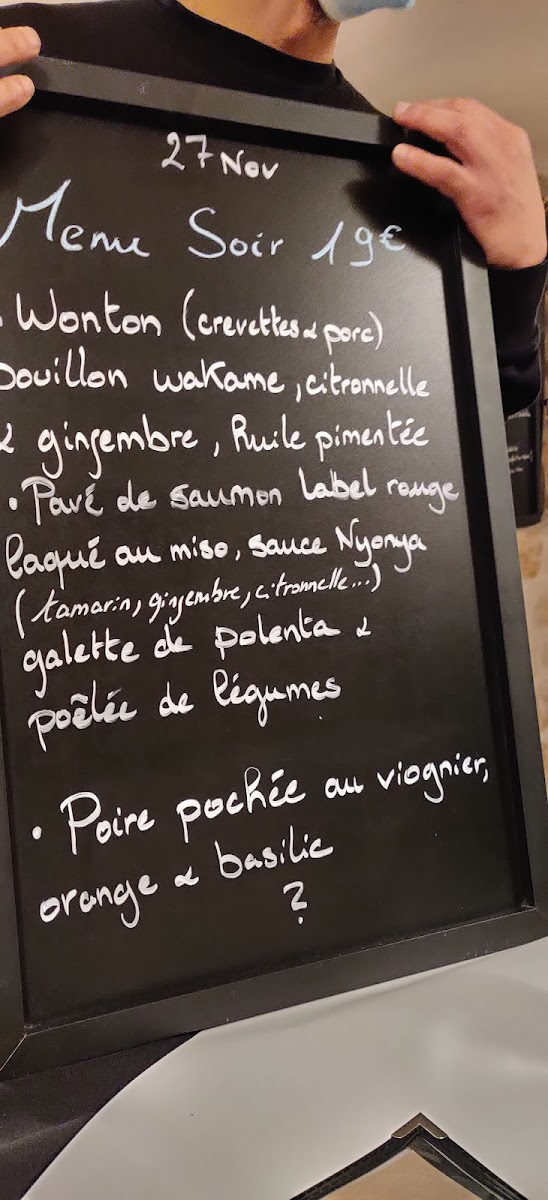 27 Nov
Menu Soir 19€
• Wonton (crevettes & porc)
bouillon wakame, citronnelle
& gingembre, Huile pimentée
• Pavé de saumon label rouge
laqué au miso, sauce Nyonya
(tamarin, gingembre, citronnelle...)
galette de polenta &
poêlée de légumes
• Poire pochée au viognier,
orange & basilic
?